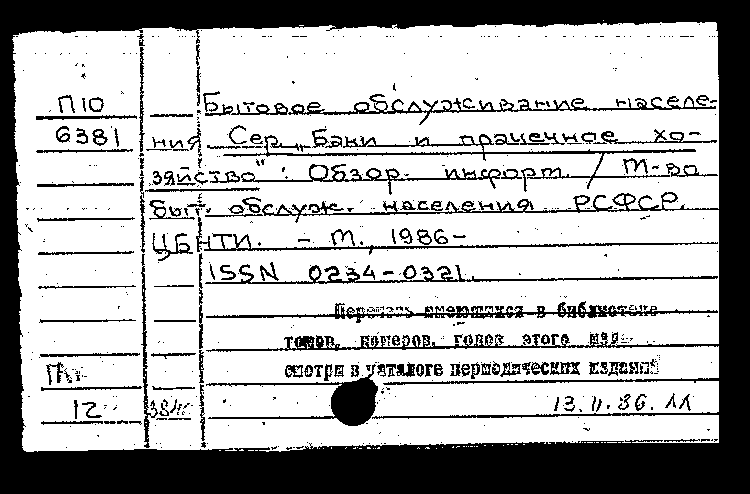 П10 Бытовое обслуживание населе-
6381 ния. Сер. „Бани и прачечное хо-
зяйство": Обзор. информ. / М-во
быт. обслуж. населения РСФСР.
ЦБНТИ. - М., 1986-
ISSN 0234-0321.
Перечень имеющихся в библиотеке
томов, номеров, годов этого изд.
смотри в каталоге периодических изданий
12